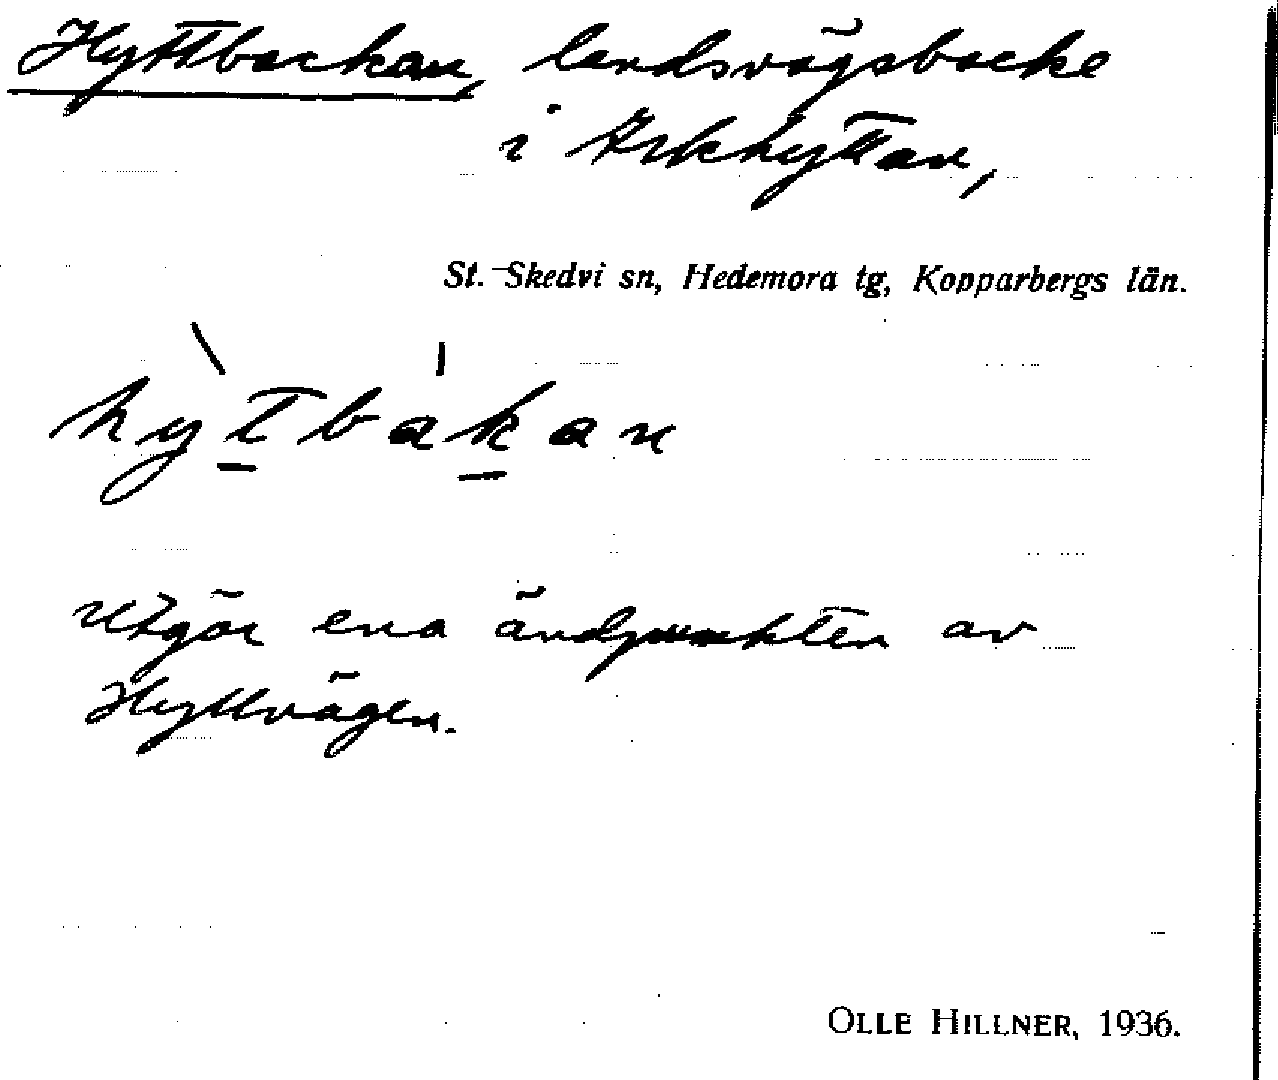 Hyttbackan, landsvägsbacke
i Arkhyttan,
St. Skedvi sn, Hedemora tg, Kopparbergs län.
hytbakan
Utgör ena ändpunkten av
Hyttvägen.
OLLE HILLNER, 1936.